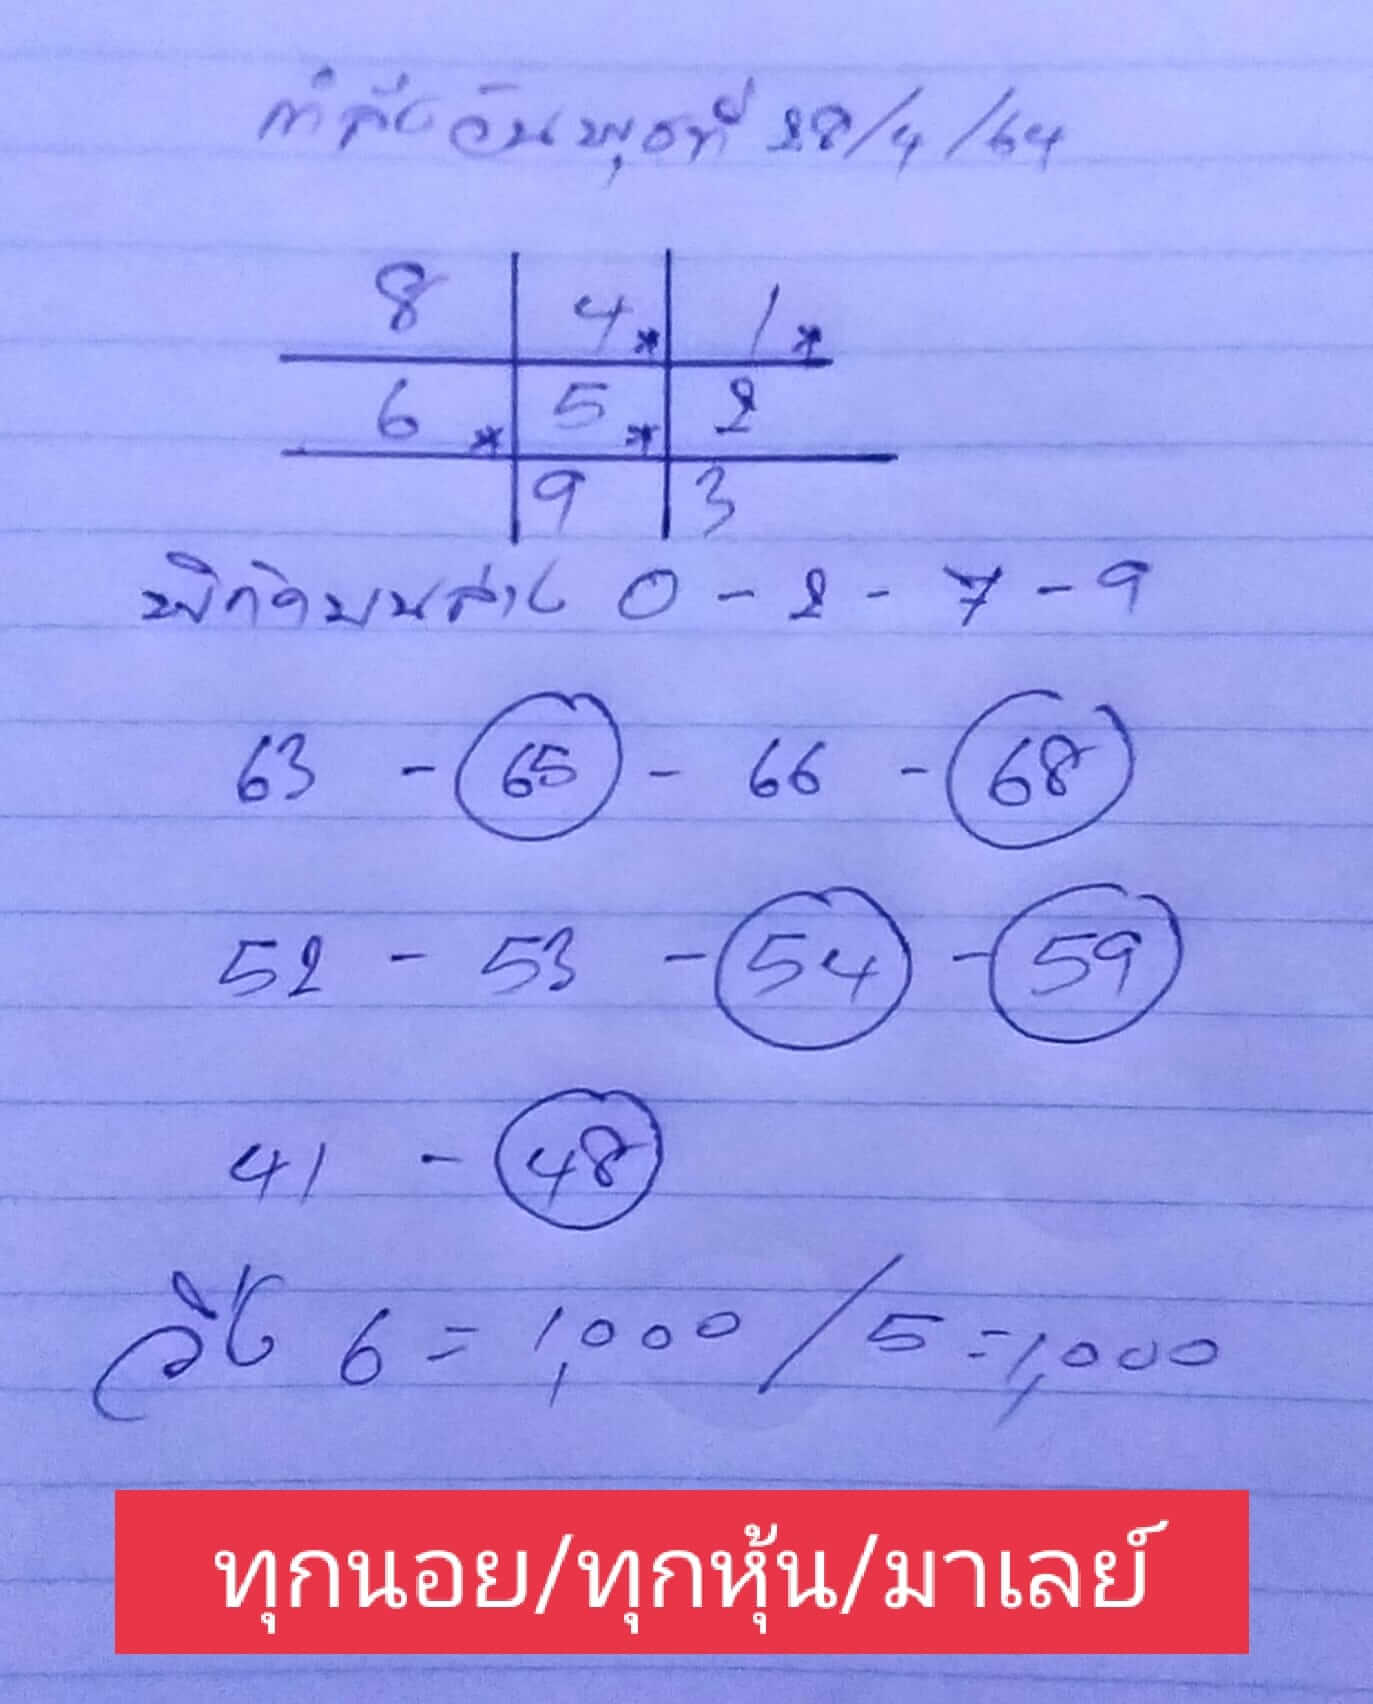 กำลังวันพุธที่ 28/4/64
8 4* 1*
6* 5* 2
9 3
พิกัดบนล่าง 0 - 2 - 7 - 9
63 - 65 - 66 - 68
52 - 53 - 54 - 59
41 - 48
วิ่ง 6 = 1,000 / 5 = 1,000
ทุกนอย/ทุกหุ้น/มาเลย์